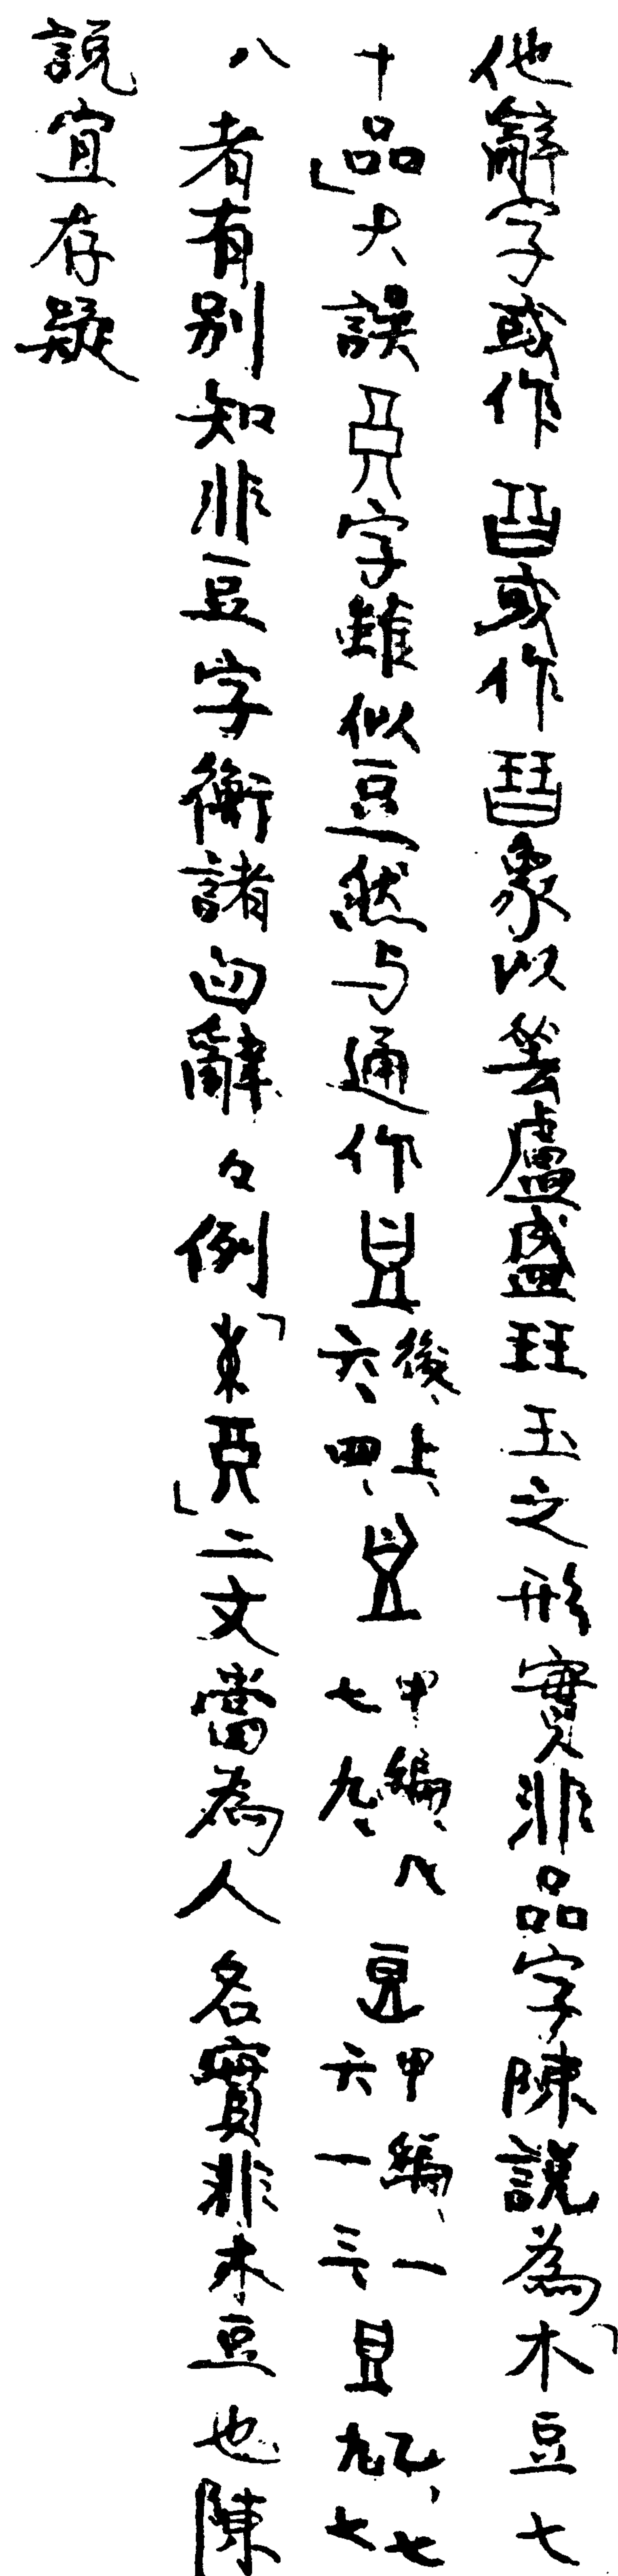 他辭字或作或作象以笭盧盛玨玉之形實非品字陳說為「木豆七
十品」大誤字雖似豆然与通作後、上、六、四、甲編、八七九、甲編、一六一三、乙、七九七
八者有別知非豆字衡諸卣辭々例「」二文當為人名實非木豆也陳
說宜存疑